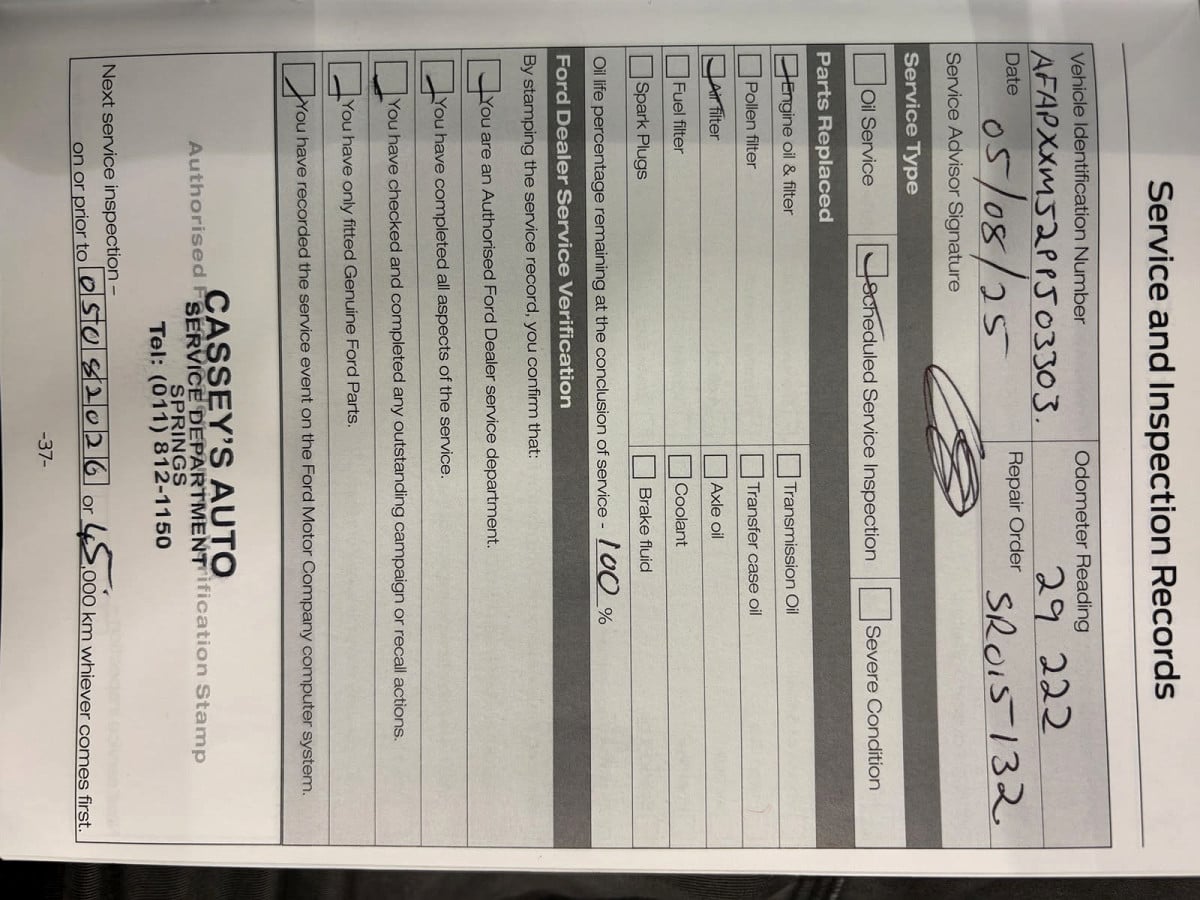 Service and Inspection Records
Vehicle Identification Number
AFAPXXMJ2PPJ03303.
Odometer Reading
29 222
Date
05/08/25
Repair Order
SR015132
Service Advisor Signature
Service Type
Oil Service
Scheduled Service Inspection
Severe Condition
Parts Replaced
Engine oil & filter
Transmission Oil
Pollen filter
Transfer case oil
Air filter
Axle oil
Fuel filter
Coolant
Spark Plugs
Brake fluid
Oil life percentage remaining at the conclusion of service - 100 %
Ford Dealer Service Verification
By stamping the service record, you confirm that:
You are an Authorised Ford Dealer service department.
You have completed all aspects of the service.
You have checked and completed any outstanding campaign or recall actions.
You have only fitted Genuine Ford Parts.
You have recorded the service event on the Ford Motor Company computer system.
CASSEY'S AUTO
Authorised
SERVICE DEPARTMENT
Stamp
SPRINGS
Tel: (011) 812-1150
Next service inspection -
on or prior to 05082026 or 45,000 km whiever comes first.
-37-